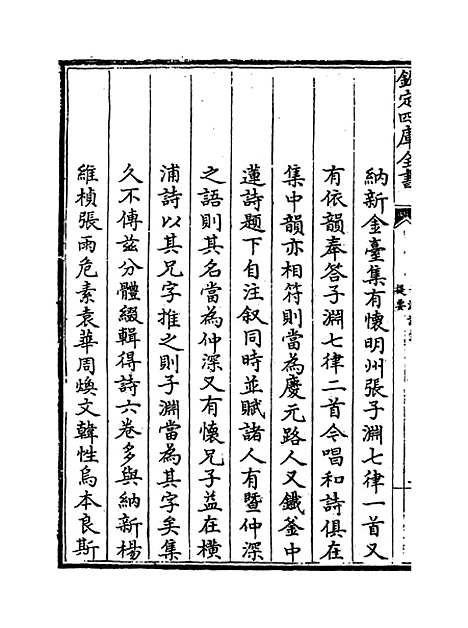 欽定四庫全書
提要
納新金臺集有懷明州張子淵七律一首又
有依韻奉答子淵七律二首今唱和詩俱在
集中韻亦相符則當為慶元路人又鐵釜中
蓮詩題下自注叙同時並賦諸人有暨仲深
之語則其名當為仲深又有懷兄子益在橫
浦詩以其兄字推之則子淵當為其字矣集
久不傳兹分體綴輯得詩六卷多與納新楊
維楨張雨危素袁華周煥文韓性烏本良斯